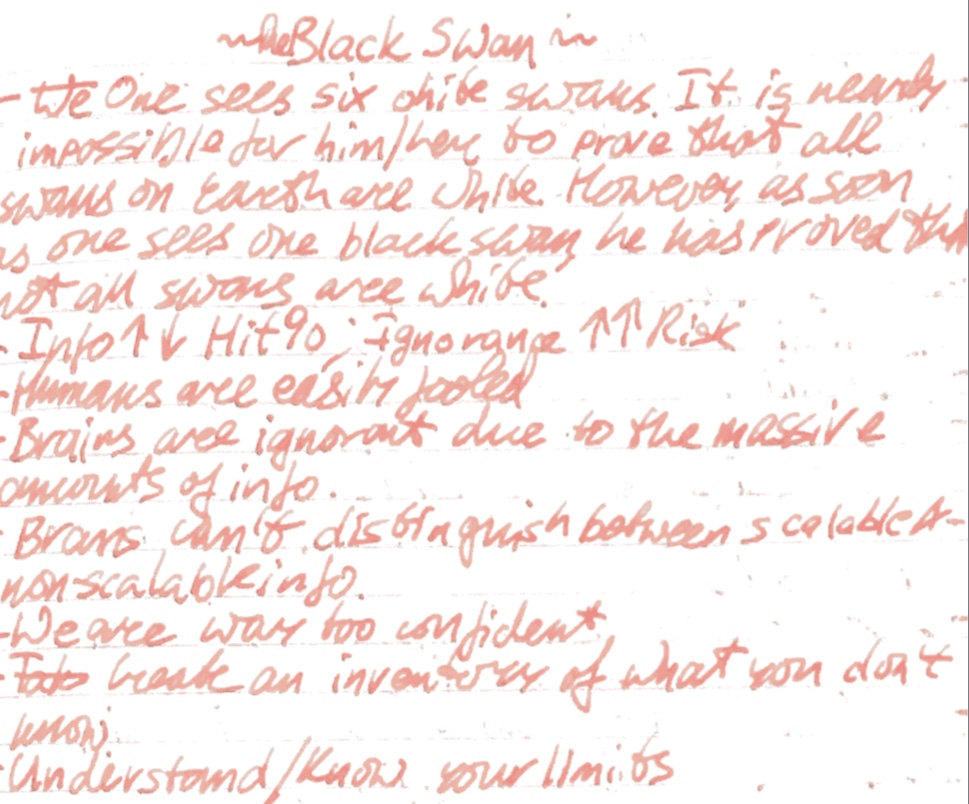 ~The Black Swan~
- We One sees six white swans. It is nearly
impossible for him/her, to prove that all
swans on Earth are white. However, as soon
as one sees one black swan, he has proved that
not all swans are white.
- Info ↑ ↓ Hit%; Ignorance ↑↑ Risk
- Humans are easily fooled
- Brains are ignorant due to the massive
amounts of info.
- Brains can't distinguish between scalable &
non-scalable info.
- We are way too confident
- Create an inventory of what you don't
know.
- Understand/Know your limits